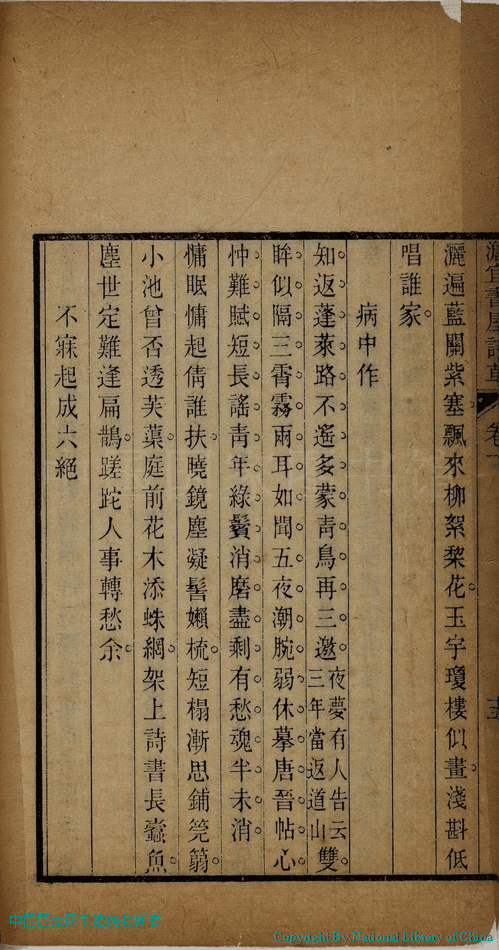 灑遍藍關紫塞飄來柳絮棃花玉宇瓊樓似畫淺斟低
唱誰家
病中作
知返蓬萊路不遙多蒙靑鳥再三邀夜夢有人告云三年當返道山雙
眸似隔三霄霧雨耳如聞五夜潮腕弱休摹唐晉帖心
忡難賦短長謠靑年綠鬢消磨盡剩有愁魂半未消
慵眠慵起倩誰扶曉鏡塵凝髻嬾梳短榻漸思鋪筦蒻
小池曾否透芙蕖庭前花木添蛛網架上詩書長蠹魚
塵世定難逢扁鵲蹉跎人事轉愁余
不寐起成六絕
Copyright By National Library of China